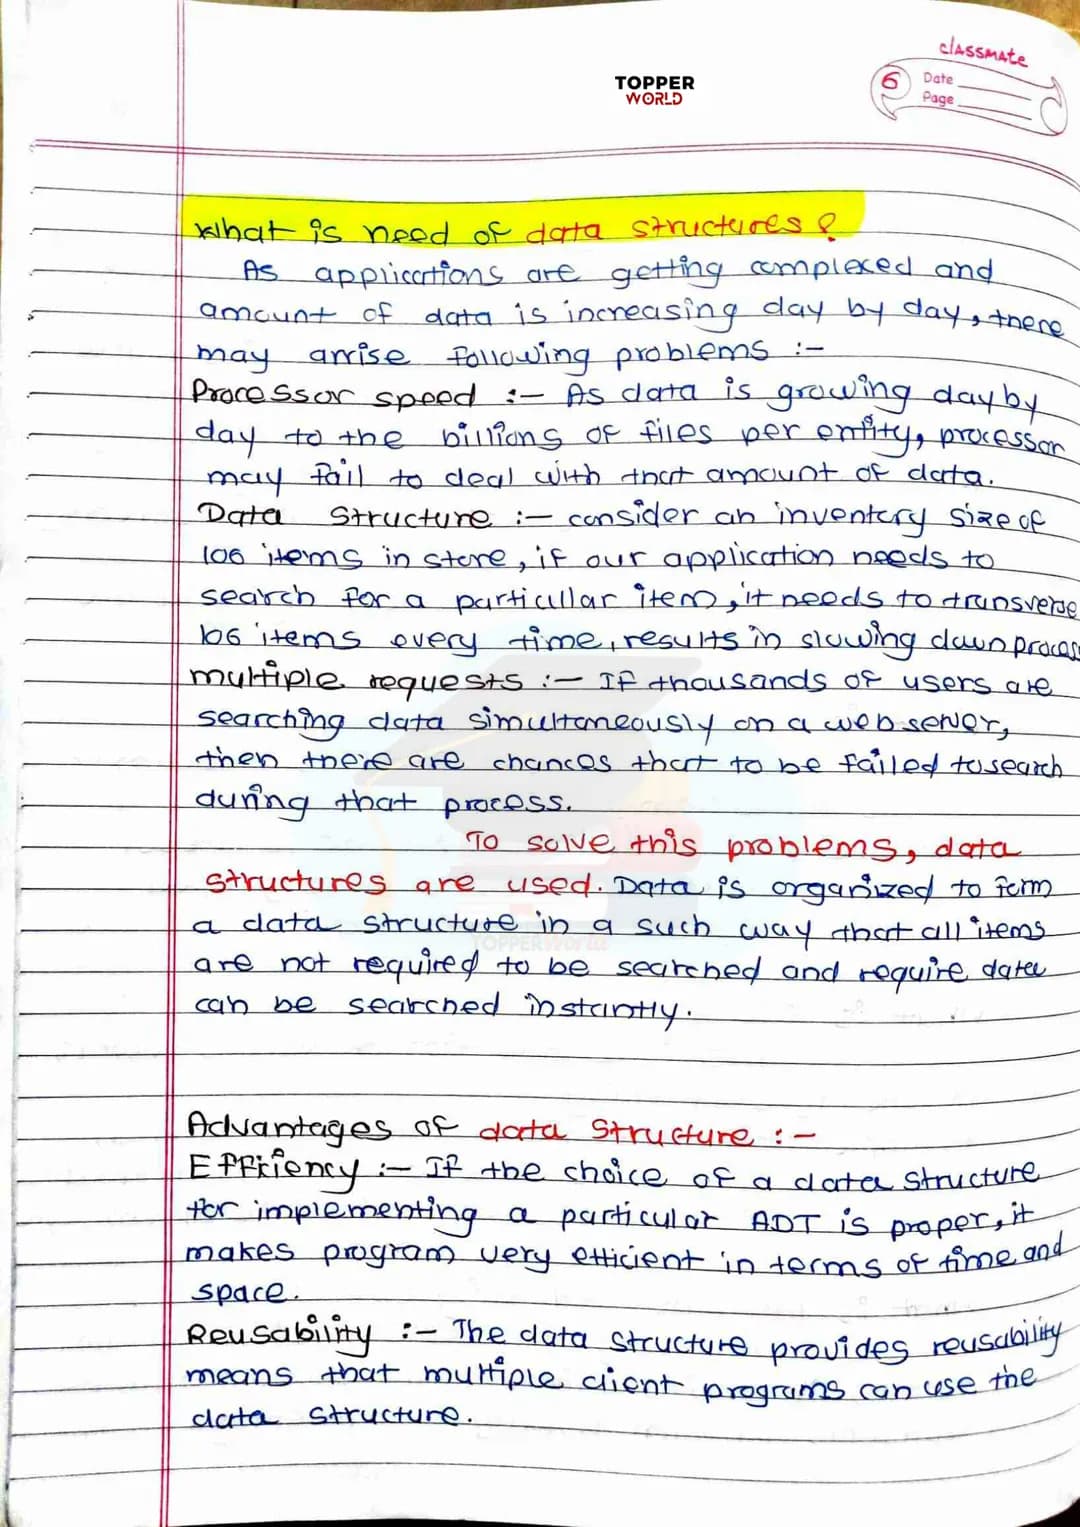 classmate
TOPPER
WORLD
6
Date
Page
What is need of data structures ?
As applications are getting complexed and
amount of data is increasing day by day, there
may arrise following problems :-
Processor speed :- As data is growing day by
day to the billions of files per entity, processor
may fail to deal with that amount of data.
Data Structure :- consider an inventory size of
106 items in store, if our application needs to
search for a particullar item, it needs to transverse
106 items every time, results in slowing down process
multiple requests :- If thousands of users are
searching data simultaneously on a web server,
then there are chances that to be failed to search
during that process.
To solve this problems, data
structures are used. Data is organized to form
a data structure in a such way that all items
TOPPER World
are not required to be searched and require data
can be searched instantly.
Advantages of data structure :-
Efficiency :- If the choice of a data structure
for implementing a particular ADT is proper, it
makes program very efficient in terms of time and
space.
Reusability :- The data structure provides reusability
means that multiple client programs can use the
data structure.